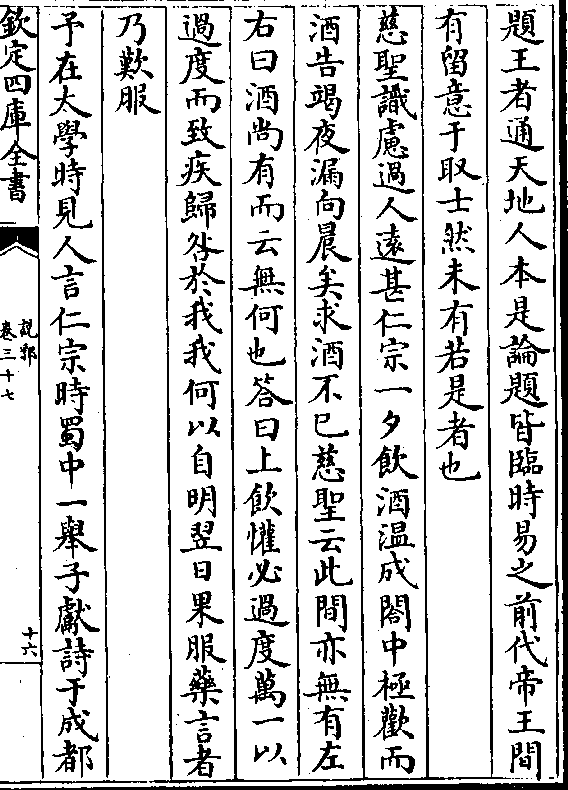 題王者通天地人本是論題皆臨時易之前代帝王間
有留意于取士然未有若是者也
慈聖識慮過人遠甚仁宗一夕飲酒温成閣中極歡而
酒告竭夜漏向晨矣求酒不已慈聖云此間亦無有左
右曰酒尚有而云無何也答曰上飲懽必過度萬一以
過度而致疾歸咎於我我何以自明翌日果服藥言者
乃歎服
予在太學時見人言仁宗時蜀中一舉子獻詩于成都
欽定四庫全書
說郛
卷三十七
十六